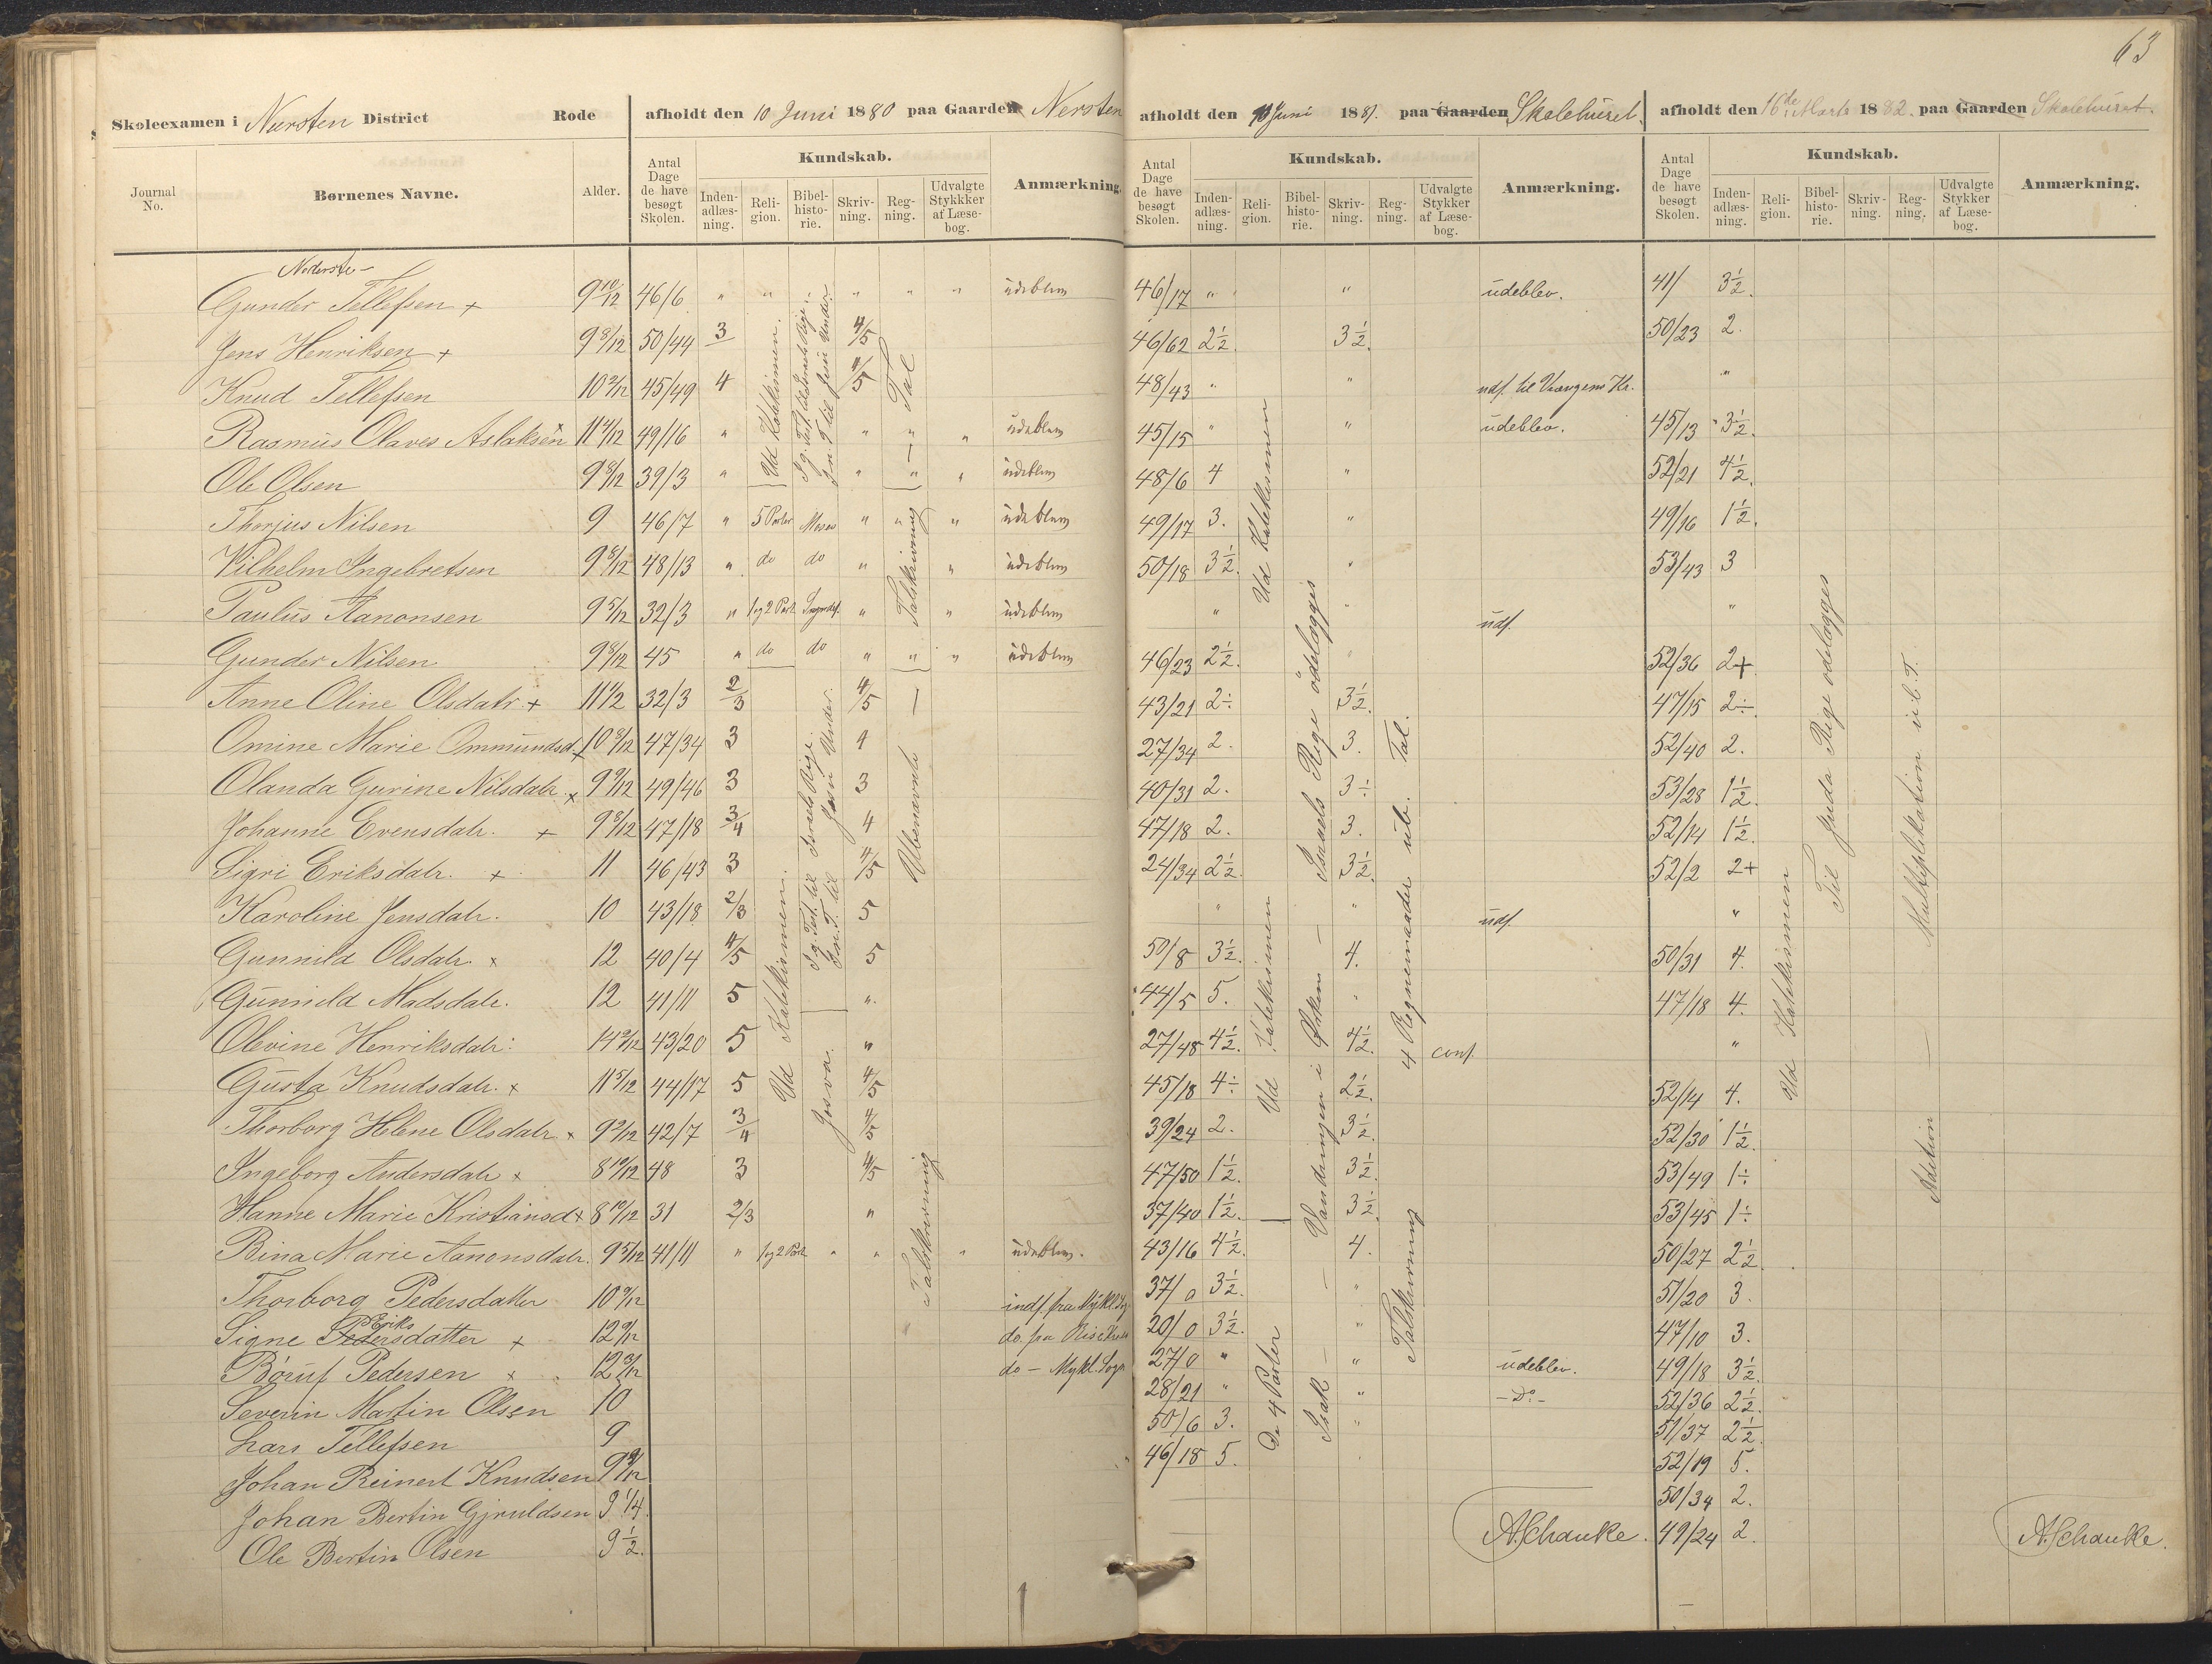 63
Skoleexamen i Nærsten District Rode afholdt den 10 Juni 1880 paa Gaarden Nersten
afholdt den 10 Juni 1881. paa Gaarden Skolehuset. afholdt den 16de Marts 1882. paa Gaarden Skolehuset.
Journal No. Børnenes Navne. Alder. Antal Dage de have besøgt Skolen. Kundskab. Inden-adlæs-ning. Reli-gion. Bibel-histo-rie. Skriv-ning. Reg-ning. Udvalgte Stykkker af Læse-bog. Anmærkning.
Antal Dage de have besøgt Skolen. Kundskab. Inden-adlæs-ning. Reli-gion. Bibel-histo-rie. Skriv-ning. Reg-ning. Udvalgte Stykker af Læse-bog. Anmærkning.
Antal Dage de have besøgt Skolen. Kundskab. Inden-adlæs-ning. Reli-gion. Bibel-histo-rie. Skriv-ning. Reg-ning. Udvalgte Stykker af Læse-bog. Anmærkning.
Nederste-
Gunder Tellefsen + 9 10/12 46/6 " " " " " udeblem 46/17 " " udeblev. 41/ 3½.
Jens Henriksen + 9 8/12 50/44 3 4/5 46/62 2½. 3½. 50/23 2.
Knud Tellefsen 10 2/12 45/49 4 4/5 48/43 " " udf. til Vrengens Kr. "
Rasmus Olaves Aslaksen × 11 4/12 49/16 " " " " udeblem 45/15 " " udeblev. 45/13 3½.
Ole Olsen 9 8/12 39/3 " " " " udeblem 48/6 4 " 52/21 4½.
Thorjus Nilsen 9 46/7 " 5 Parter Moses " " " udeblem 49/17 3. " 49/16 1½.
Vilhelm Ingebretsen 9 8/12 48/13 " do do " " udeblem 50/18 3½. " 53/43 3
Paulus Aanonsen 9 5/12 32/3 " 1 og 2 Part " " udeblem " " udf. "
Gunder Nilsen 9 8/12 45 " do do " " " udeblem 46/23 2½. " 52/36 2+
Anne Oline Olsdatr + 11 1/2 32/3 2/3 4/5 — 43/21 2÷ 3½. 47/15 2÷.
Omine Marie Ommundsd. + 10 8/12 47/34 3 4 27/34 2. 3. 52/40 2.
Olanda Gurine Nilsdatr. × 9 9/12 49/46 3 3 40/31 2. 3÷ 53/28 1½.
Johanne Evensdatr. + 9 8/12 47/18 3/4 4 47/18 2. 3. 52/14 1½.
Sigri Eriksdatr. + 11 46/43 3 4/5 24/34 2½. 3½. 52/2 2+
Karoline Jensdatr. 10 43/18 2/3 5 " " udf. "
Gunnild Olsdatr. × 12 40/4 4/5 5 50/8 3½. 4. 50/31 4.
Gunnild Madsdatr. 12 41/11 5 " 44/5 5. " 47/18 4.
Olevine Henriksdatr. 14 2/12 43/20 5 " 27/48 4½. 4½. conf. "
Gusta Knudsdatr. × 11 5/12 44/17 5 4/5 45/18 4÷ 2½. 52/14 4.
Thorborg Helene Olsdatr × 9 2/12 42/7 3/4 4/5 39/24 2. 3½. 52/30 1½.
Ingeborg Andersdatr × 8 10/12 48 3 4/5 47/50 1½. 3½. 53/49 1÷
Hanne Marie Kristiansd × 8 10/12 31 2/3 " 37/40 1½. 3½. 53/45 1÷
Bina Marie Aanonsdatr. 9 5/12 41/11 " 1 og 2 Part " " " udeblem. 43/16 4½. 4. 50/27 2½.
Thorborg Pedersdatter 10 9/12 indf. fra Mykl. Sogn 37/0 3½. " 51/20 3.
Signe Pedersdatter Eriks + 12 9/12 do. fra 20/0 3½. " 47/10 3.
Børuf Pedersen × 12 3/12 do — Mykl. Sogn 27/0 " " udeblev. 49/18 3½.
Severin Martin Olsen 10 28/21 " " — Do — 52/36 2½.
Lars Tellefsen 9 50/6 3. " 51/37 2½.
Johan Reinert Knudsen 9 46/18 5. 52/19 5.
Johan Bertin Gjruldsen 9 1/4. 50/34 2.
Ole Bertin Olsen 9½. 49/24 2.
Ud Katekismen.
Israels Rige.
til Jesu Under.
Tal
Talskrivning
Ud Katekismen.
Israels Rige.
Jesu Under.
Josva.
Ubenævnte
Talskrivning
Ud Katekismen
Ud Katekismen
De 4 Parter
Vandringen i Ørken — Israels Rige ödelægges
Isak —
4 Regnemaader ub. Tal.
Talskrivning
Ud Katekismen
Til Juda Rige ödelægges
Multiplikation i u.b.T.
Adition
A. Schanke.
A. Schanke.